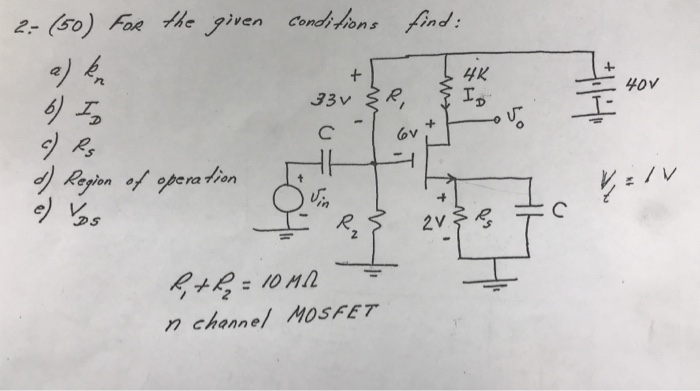 2.- (50) FOR the given conditions find:
a) kn
b) ID
c) Rs
d) Region of operation
e) VDS
+
33V
-
R1
4K
ID
+
40V
-
Vo
C
6V +
-
+
Vin
-
R2
+
2V
-
Rs
C
Vt = 1V
R1 + R2 = 10 MΩ
n channel MOSFET